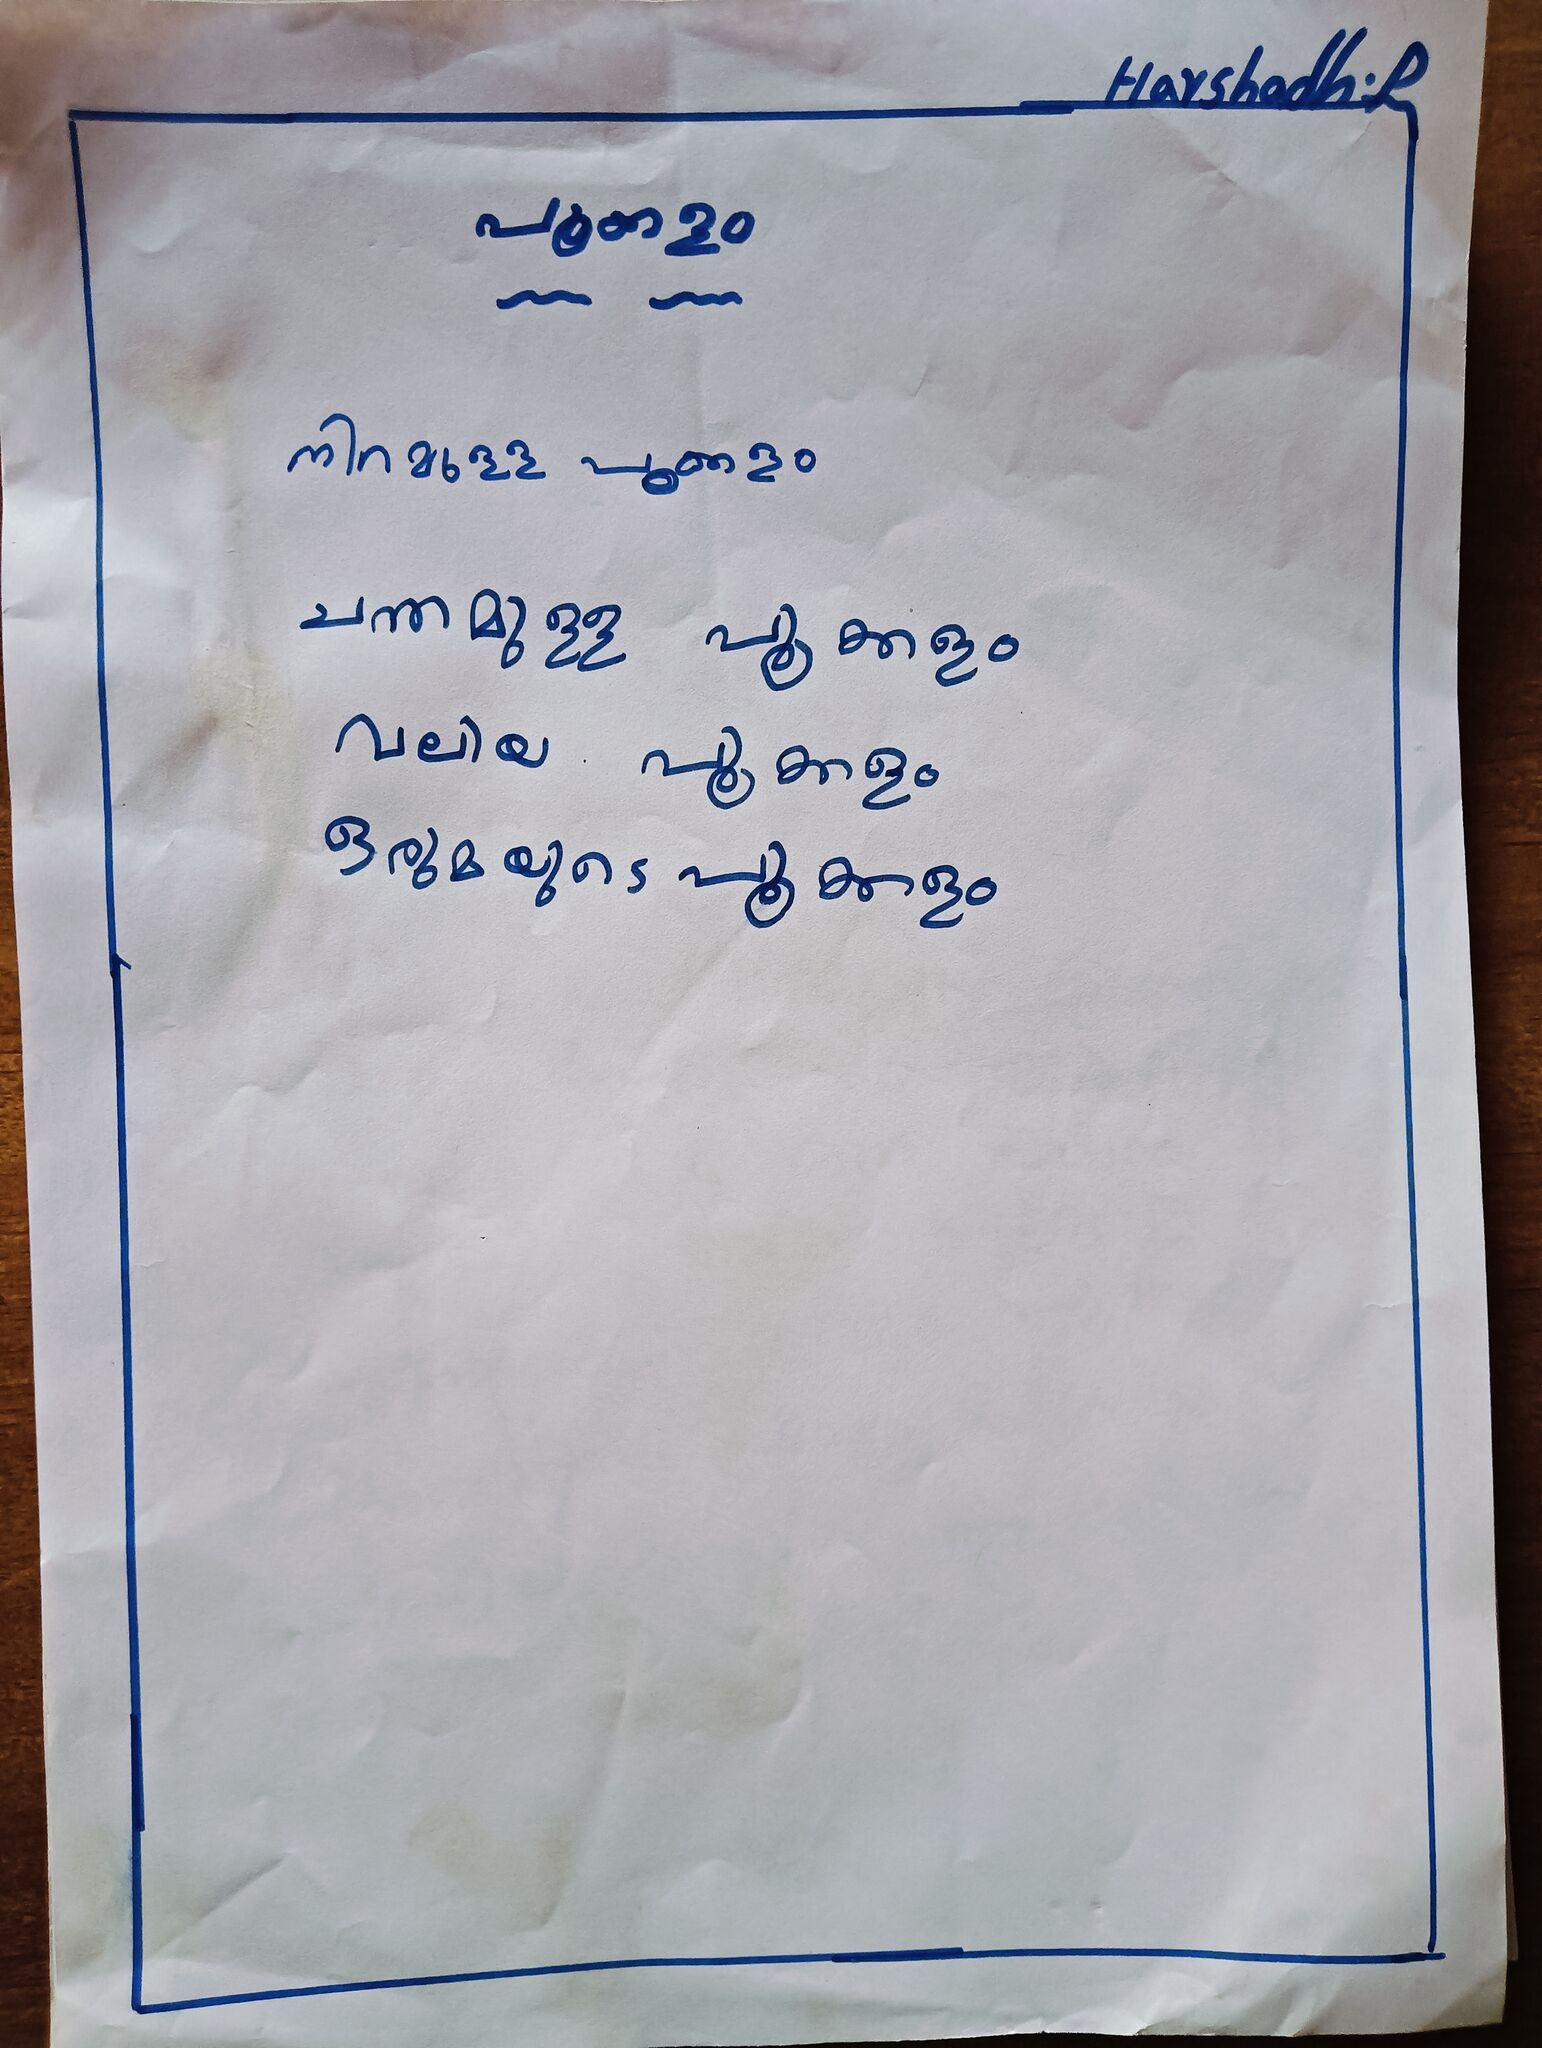 Harshadh.R
പൂക്കളം
നിറമുള്ള പൂക്കളം
ചന്തമുള്ള പൂക്കളം
വലിയ പൂക്കളം
ഒരുമയുടെ പൂക്കളം